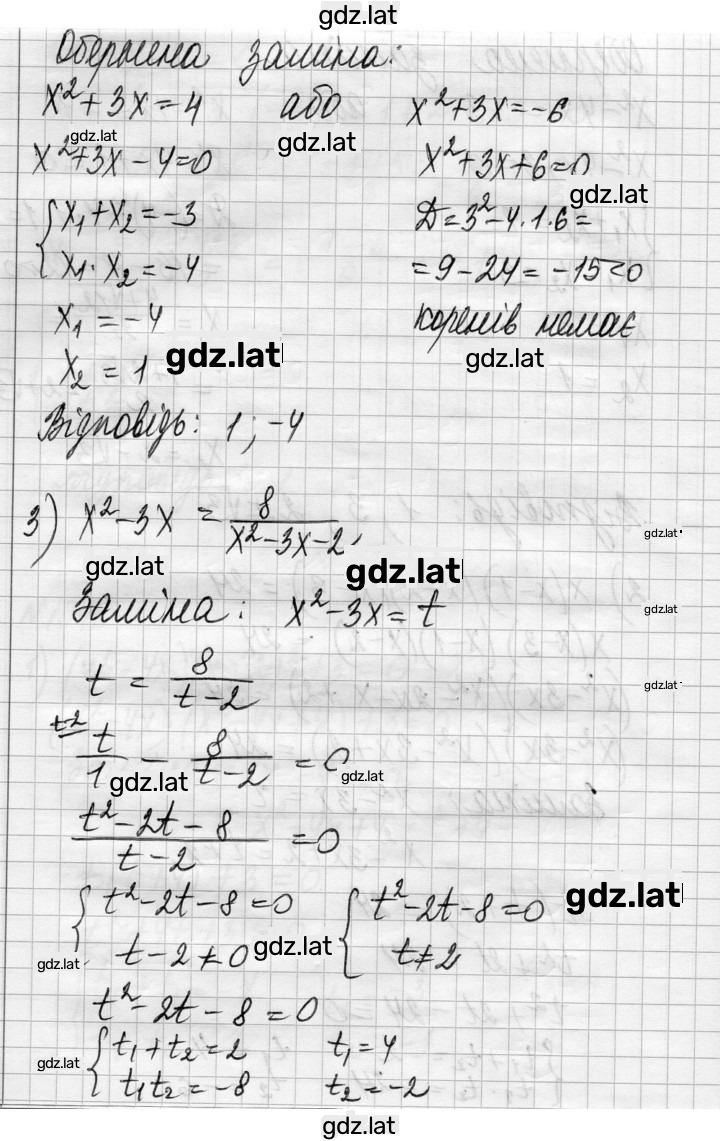 gdz.lat
Обернена заміна:
x²+3x=4 або x²+3x=-6
gdz.lat gdz.lat
x²+3x-4=0 x²+3x+6=0
gdz.lat
{x₁+x₂=-3 D=3²-4·1·6=
x₁·x₂=-4 =9-24=-15<0
x₁=-4 коренів немає
x₂=1 gdz.lat gdz.lat
Відповідь: 1; -4
3) x²-3x = 8/(x²-3x-2),
gdz.lat
gdz.lat gdz.lat
Заміна: x²-3x=t
gdz.lat
t = 8/(t-2)
gdz.lat
t-2
t/1 - 8/(t-2) = 0
gdz.lat gdz.lat
(t²-2t-8)/(t-2) = 0
{t²-2t-8=0 {t²-2t-8=0 gdz.lat
t-2≠0 t≠2
gdz.lat gdz.lat
t²-2t-8=0
{t₁+t₂=2 t₁=4
gdz.lat
t₁t₂=-8 t₂=-2
gdz.lat